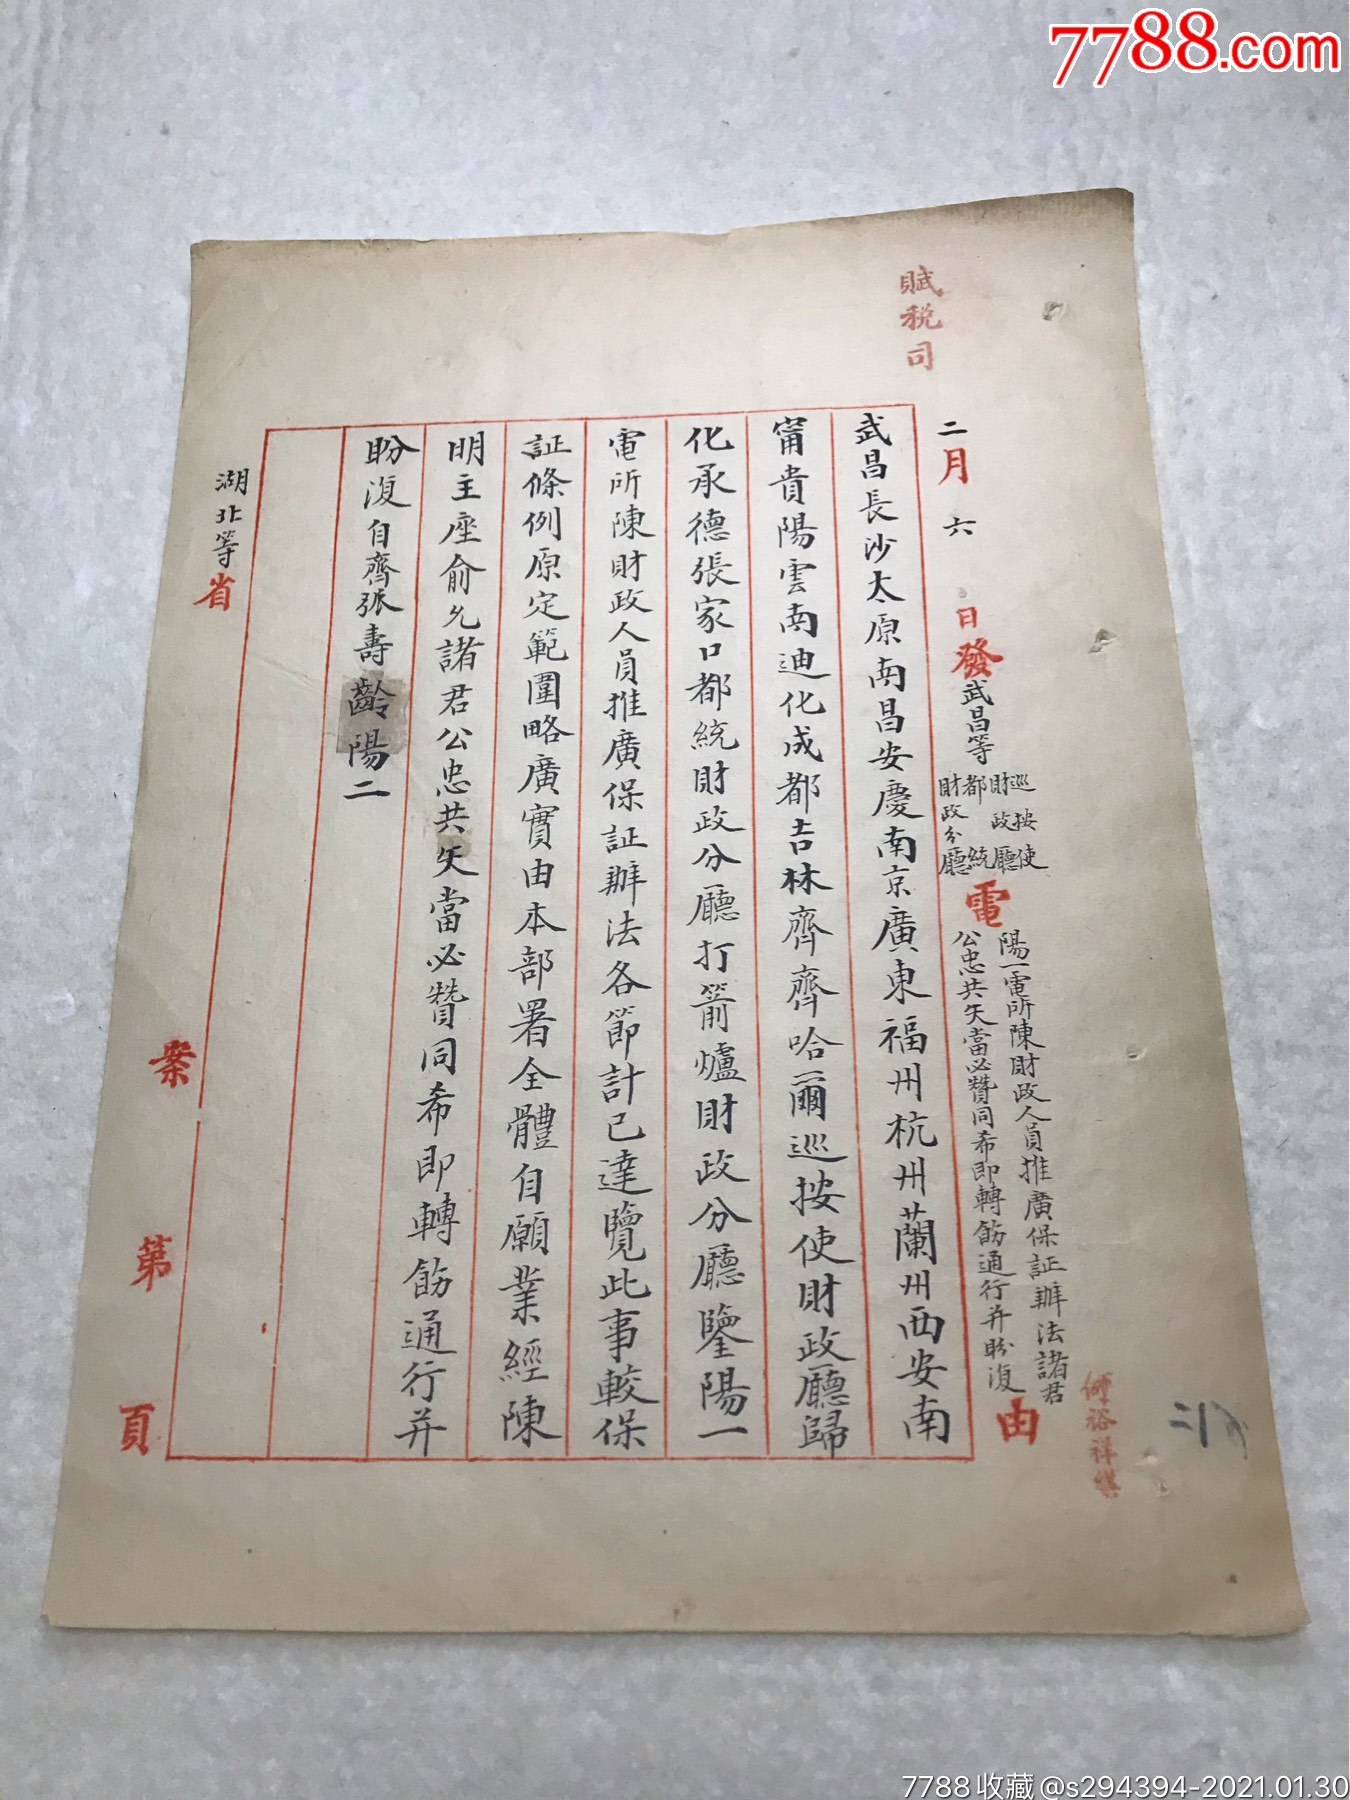 7788.com
賦税司
二月六日發武昌等
巡按使
財政廳
都統
財政分廳
電
陽一電所陳財政人員推廣保証辦法諸君
公忠共矢當必贊同希即轉飭通行并盼復
由
裕祥繕
武昌長沙太原南昌安慶南京廣東福州杭州蘭州西安南
甯貴陽雲南迪化成都吉林齊齊哈爾巡按使財政廳歸
化承德張家口都統財政分廳打箭爐財政分廳鑒陽一
電所陳財政人員推廣保証辦法各節計已達覽此事較保
証條例原定範圍略廣實由本部署全體自願業經陳
明主座俞允諸君公忠共矢當必贊同希即轉飭通行并
盼復自齊張壽齡陽二
湖北等省案第頁
7788收藏@s294394-2021.01.30